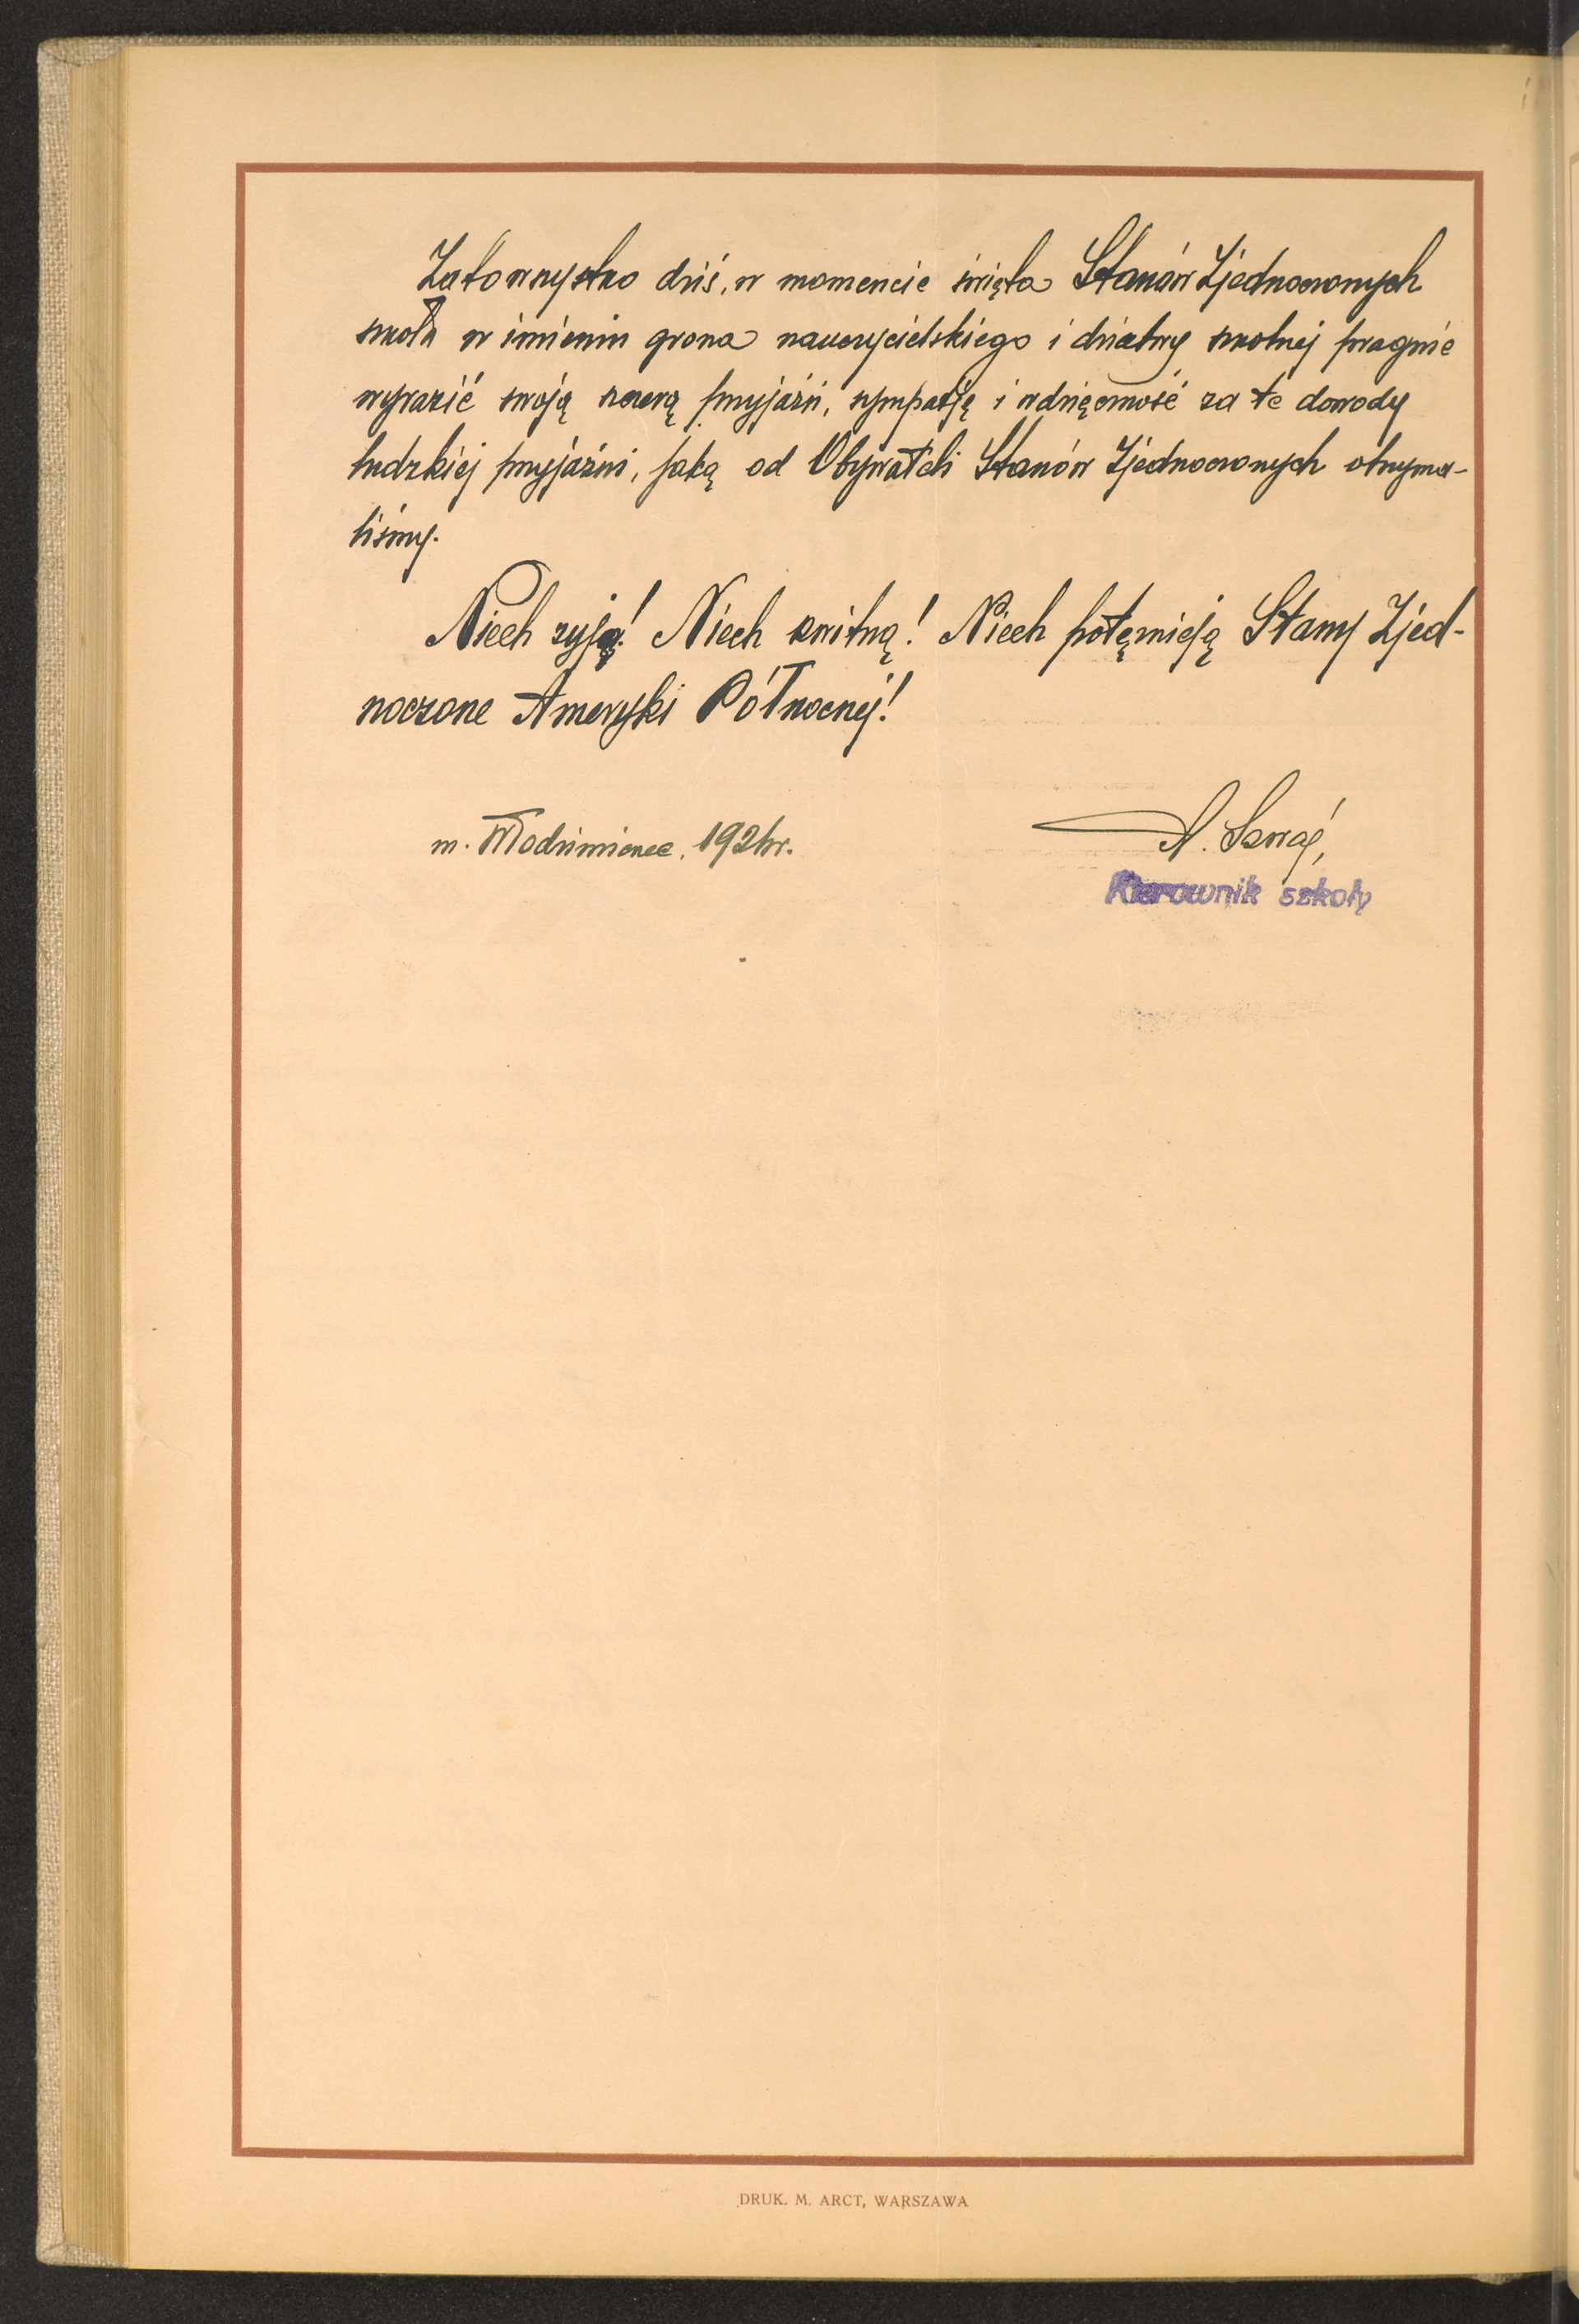 Za to wszystko dziś, w momencie święta Stanów Zjednoczonych
szkoła w imieniu grona nauczycielskiego i dziatwy szkolnej pragnie
wyrazić swoją szczerą przyjaźń, sympatję i wdzięczność za te dowody
ludzkiej przyjaźni, jaką od Obywateli Stanów Zjednoczonych otrzyma-
liśmy.
Niech żyją! Niech kwitną! Niech potężnieją Stany Zjed-
noczone Ameryki Północnej!
m. Włodzimierzec, 1926r.
Kierownik szkoły
DRUK. M. ARCT, WARSZAWA